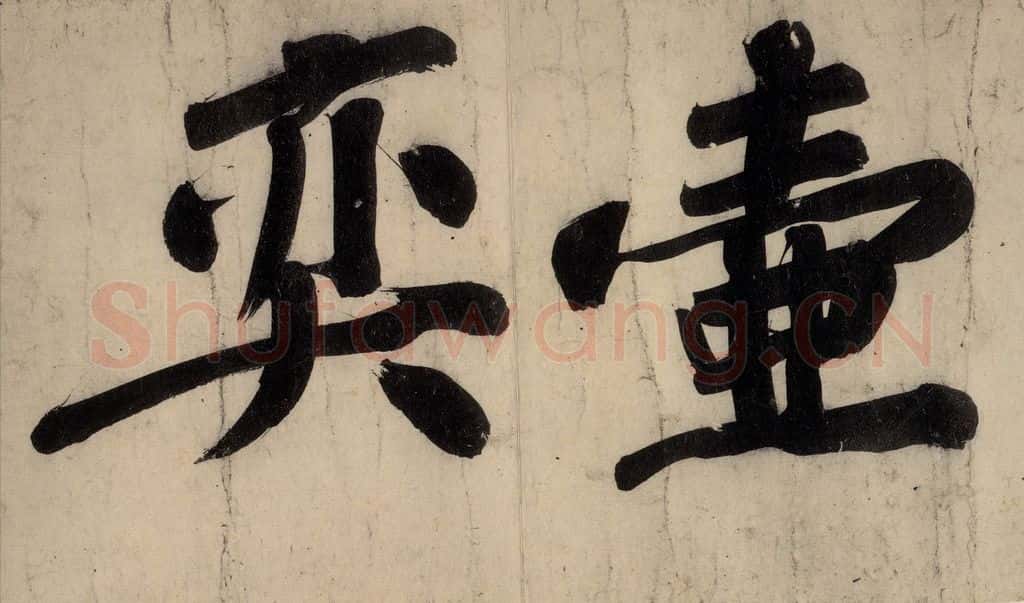 壺
奕
Shufawang.CN